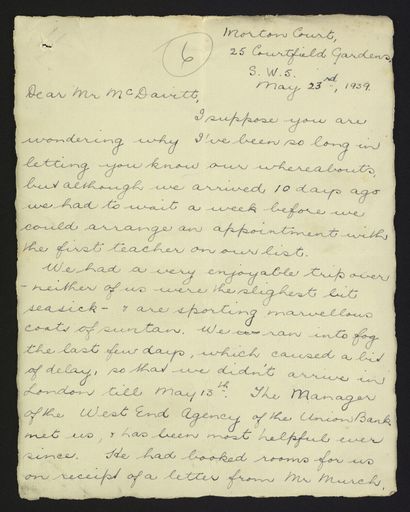 6
Morton Court,
25 Courtfield Gardens,
S.W.5.
May 23rd, 1939.
Dear Mr McDavitt,
I suppose you are
wondering why I've been so long in
letting you know our whereabouts,
but although we arrived 10 days ago
we had to wait a week before we
could arrange an appointment with
the first teacher on our list.
We had a very enjoyable trip over
- neither of us were the slighest bit
seasick - & are sporting marvellous
coats of suntan. We ran into fog
the last few days, which caused a bit
of delay, so that we didn't arrive in
London till May 13th. The Manager
of the West End Agency of the Union Bank
met us, & has been most helpful ever
since. He had booked rooms for us
on receipt of a letter from Mr Murch.